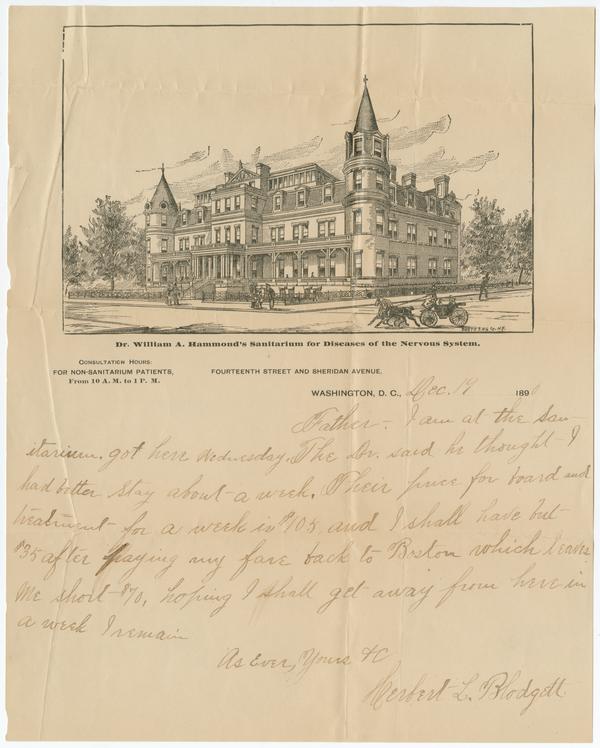 Dr. William A. Hammond's Sanitarium for Diseases of the Nervous System.
CONSULTATION HOURS:
FOR NON-SANITARIUM PATIENTS,
From 10 A. M. to 1 P. M.
FOURTEENTH STREET AND SHERIDAN AVENUE.
WASHINGTON, D. C., Dec. 19 1890
Father - I am at the San-
itarium. got here Wednesday. The Dr. said he thought I
had better stay about a week. Their price for board and
treatment for a week is $105, and I shall have but
$35 after paying my fare back to Boston which leaves
me short $70, hoping I shall get away from here in
a week I remain
As Ever, Yours &C
Herbert L. Blodgett